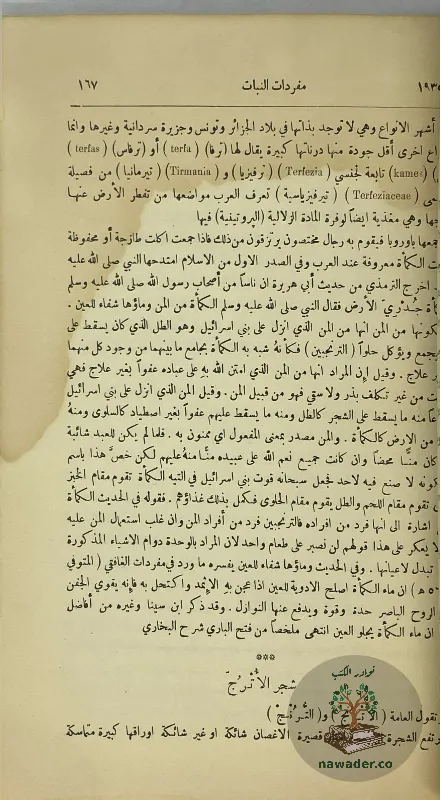 ١٩٣٥ مفردات النبات ١٦٧
أشهر الانواع وهي لا توجد بذاتها في بلاد الجزائر وتونس وجزيرة سردانية وغيرها وانما
اع اخرى أقل جودة منها درناتها كبيرة يقال لها (ترفا) (terfa) أو (ترفاس) (terfas)
(kames) تابعة لجنسي (Terfezia) (ترفيزيا) و (Tirmania) (تيرمانيا) من فصيلة
(Terfeziaceae) (تيرفيزياسية) تعرف العرب مواضعها من تفطر الأرض عنها
وهي مغذية ايضاً لوفرة المادة الزلالية (البروتينية) فيها
بأوروبا فيقوم به رجال مختصون يرتزقون من ذلك فاذا جمعت اكلت طازجة أو محفوظة
الكمأة معروفة عند العرب وفي الصدر الاول من الاسلام امتدحها النبي صلى الله عليه
اخرج الترمذي من حديث أبي هريرة ان ناساً من أصحاب رسول الله صلى الله عليه وسلم
جُدَريّ الأرض فقال النبي صلى الله عليه وسلم الكمأة من المن وماؤها شفاء للعين .
كونها من المن انها من المن الذي انزل على بني اسرائيل وهو الطل الذي كان يسقط على
يجمع ويؤكل حلواً (الترنجبين) فكأنهُ شبه به الكمأة بجامع ما بينهما من وجود كل منهما
علاج . وقيل إن المراد انها من المن الذي امتن الله به على عباده عفواً بغير علاج فهي
من غير تكلف بذر ولا سقي فهو من قبيل المن . وقيل المن الذي انزل على بني اسرائيل
منه ما يسقط على الشجر كالطل ومنه ما يسقط عليهم عفواً بغير اصطياد كالسلوى ومنهُ
من الارض كالكمأة . والمن مصدر بمعنى المفعول اي ممنون به . فلما لم يكن للعبد شائبة
كان منّاً محضاً وان كانت جميع نعم الله على عبيده منّاً منهُ عليهم لكن خصّ هذا باسم
كونه لا صنع فيه لاحد فجعل سبحانه قوت بني اسرائيل في التيه الكمأة تقوم مقام الخبز
تقوم مقام اللحم والطل يقوم مقام الحلوى فكمل بذلك غذاؤهم . فقوله في الحديث الكمأة
اشارة الى انها فرد من افراده فالترنجبين فرد من أفراد المن وان غلب استعمال المن عليه
لا يعكر على هذا قولهم لن نصبر على طعام واحد لان المراد بالوحدة دوام الاشياء المذكورة
تبدل لاعيانها . وفي الحديث وماؤها شفاء للعين يفسره ما ورد في مفردات الغافقي (المتوفي
ه) ان ماء الكمأة اصلح الادوية للعين اذا عجن به الإثمد واكتحل به فإنه يقوي الجفن
الروح الباصر حدة وقوة ويدفع عنها النوازل . وقد ذكر ابن سينا وغيره من أفاضل
ان ماء الكمأة يجلو العين انتهى ملخصاً من فتح الباري شرح البخاري
***
شجر الأُتْرُجّ
تقول العامة و (التُّرُنْج)
ترتفع الشجرة قصيرة الاغصان شائكة او غير شائكة اوراقها كبيرة متماسكة
نوادر الكتب
nawader.co